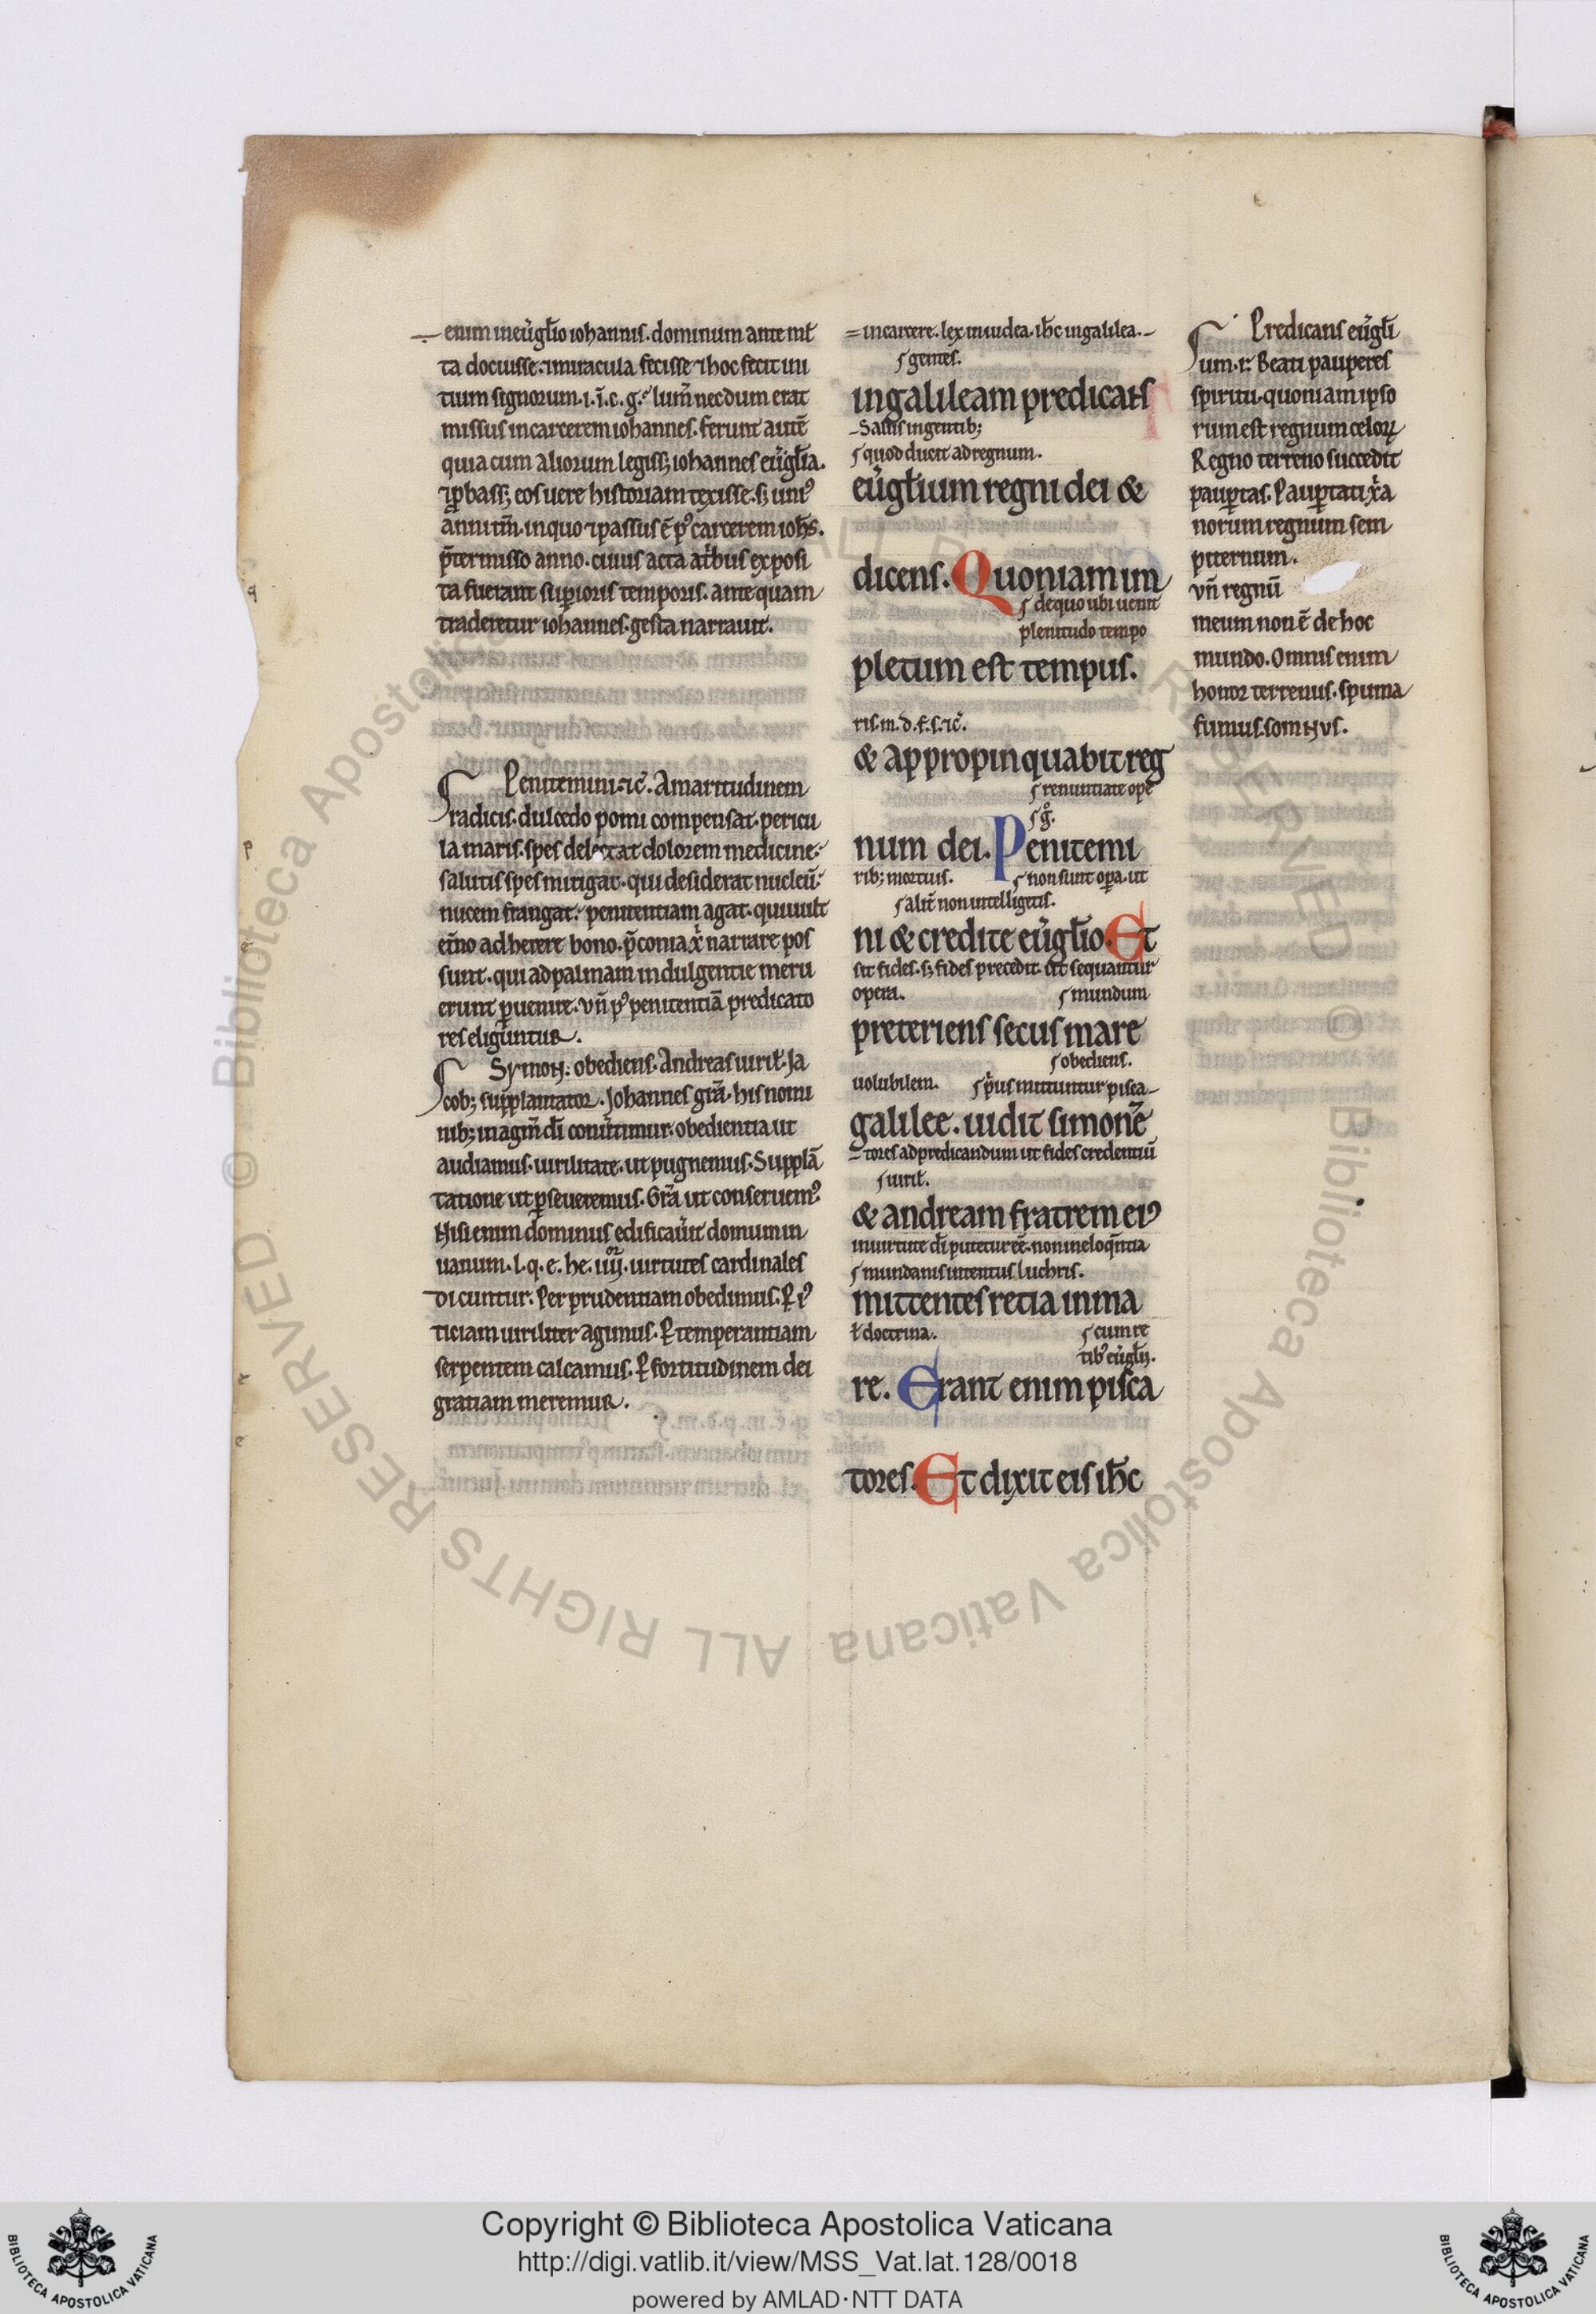 enim in eu̅gl̅io iohannis. dominum ante ml̅
ta docuisse. ⁊ miracula fecisse ⁊ hoc fecit ini
tium signorum. i. i̅. c. g. lum̅ necdum erat
missus in carcerem iohannes. ferunt aute̅
quia cum aliorum legiss; iohannes eu̅gl̅ia.
⁊ p̱bass; eos uere historiam texisse. s; uni᾿
anni tm̅. in quo ⁊ passus e̅ p᾿ carcerem ioh̅s.
p̅termisso anno. cuius acta a t̅bus exposi
ta fuerant sup̱ioris temporis. ante quam
traderetur iohannes. gesta narrauit.
Penitemini. ⁊c̅. Amaritudinem
radicis. dulcedo pomi compensat. pericu
la maris. spes delectat dolorem medicine.
salutis spes mitigat. qui desiderat nucleu̅.
nucem frangat. penitentiam agat. qui uult
et̅no adherere bono. p̅conia x̅ narrare pos
sunt. qui ad palmam indulgentie meru
erunt p̱uenire. vn̅ p᾿ penitentia̅ predicato
res eliguntur.
Symon. obediens. Andreas uiril̅. Ja
cob; supplantator. Johannes gr̅a. his nomi
nib; in agm̅ di̅ conu̅timur. obedientia ut
audiamus. uirilitate. ut pugnemus. Suppla̅
tatione ut p̱seueremus. Gr̅a ut conseruem᾿.
Nisi enim dominus edificau̅it domum in
uanum. l. q. e. he. iiij.or uirtutes cardinales
dicuntur. Per prudentiam obedimus. P̱ i᾿
ticiam uiriliter agimus. P̱ temperantiam
serpentem calcamus. P̱ fortitudinem dei
gratiam meremur.
in carcere. lex in iudea. ih̅c in galilea.
gentes.
in galileam predicans
Satis in gentib;
quod ducit ad regnum.
eu̅gl̅ium regni dei &
dicens. Quoniam im
de quo ubi uenit
plenitudo tempo
pletum est tempus.
ris. m. d. f. s. ⁊c̅.
& appropinquabit reg
renuntiate ope
num dei. Penitemi
rib; mortuis. non sunt op̱a. ut
alit̅ non intelligetis.
ni & credite eu̅gl̅io. Et
sit fides. s; fides precedit. ut sequantur
opera. mundum
preteriens secus mare
obediens.
uolubilem. p̅us mittuntur pisca
galilee. uidit simone̅
tores ad predicandum ut fides credentiu̅
uiril̅.
& andream fratrem ei᾿
in uirtute di̅ putetur e̅e̅. non in eloq̅ntia
mundanis intentus luchris.
mittentes retia in ma
l̅ doctrina. cum re
tib᾿ eu̅gl̅ij.
re. Erant enim pisca
tores. Et dixit eis ih̅c
Predicans eu̅gl̅i
um. r̅. Beati pauperes
spiritu. quoniam ipso
rum est regnum celoꝝ
Regno terreno succedit
paup̱tas. Paup̱tati x̅a
norum regnum sem
piternum.
vn̅ regnu̅
meum non e̅ de hoc
mundo. Omnis enim
honor terrenus. spuma
fumus. somnus.
Copyright © Biblioteca Apostolica Vaticana
http://digi.vatlib.it/view/MSS_Vat.lat.128/0018
powered by AMLAD·NTT DATA